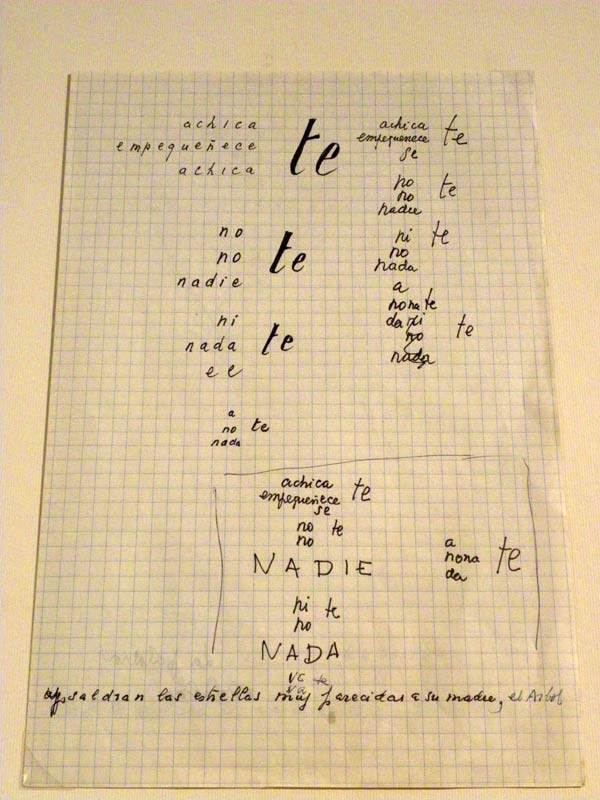 achica
empequeñece te
achica
no
no te
nadie
ni
nada te
el
a
no te
nada
achica
empequenece te
se
no te
no
nadie
ni te
no
nada
a
nonate
da ni te
no
nada
achica
empequeñece te
se
no te
no
NADIE
ni te
no
NADA
a
nona te
da
saldran las estrellas muy parecidas a su madre, el Arbol